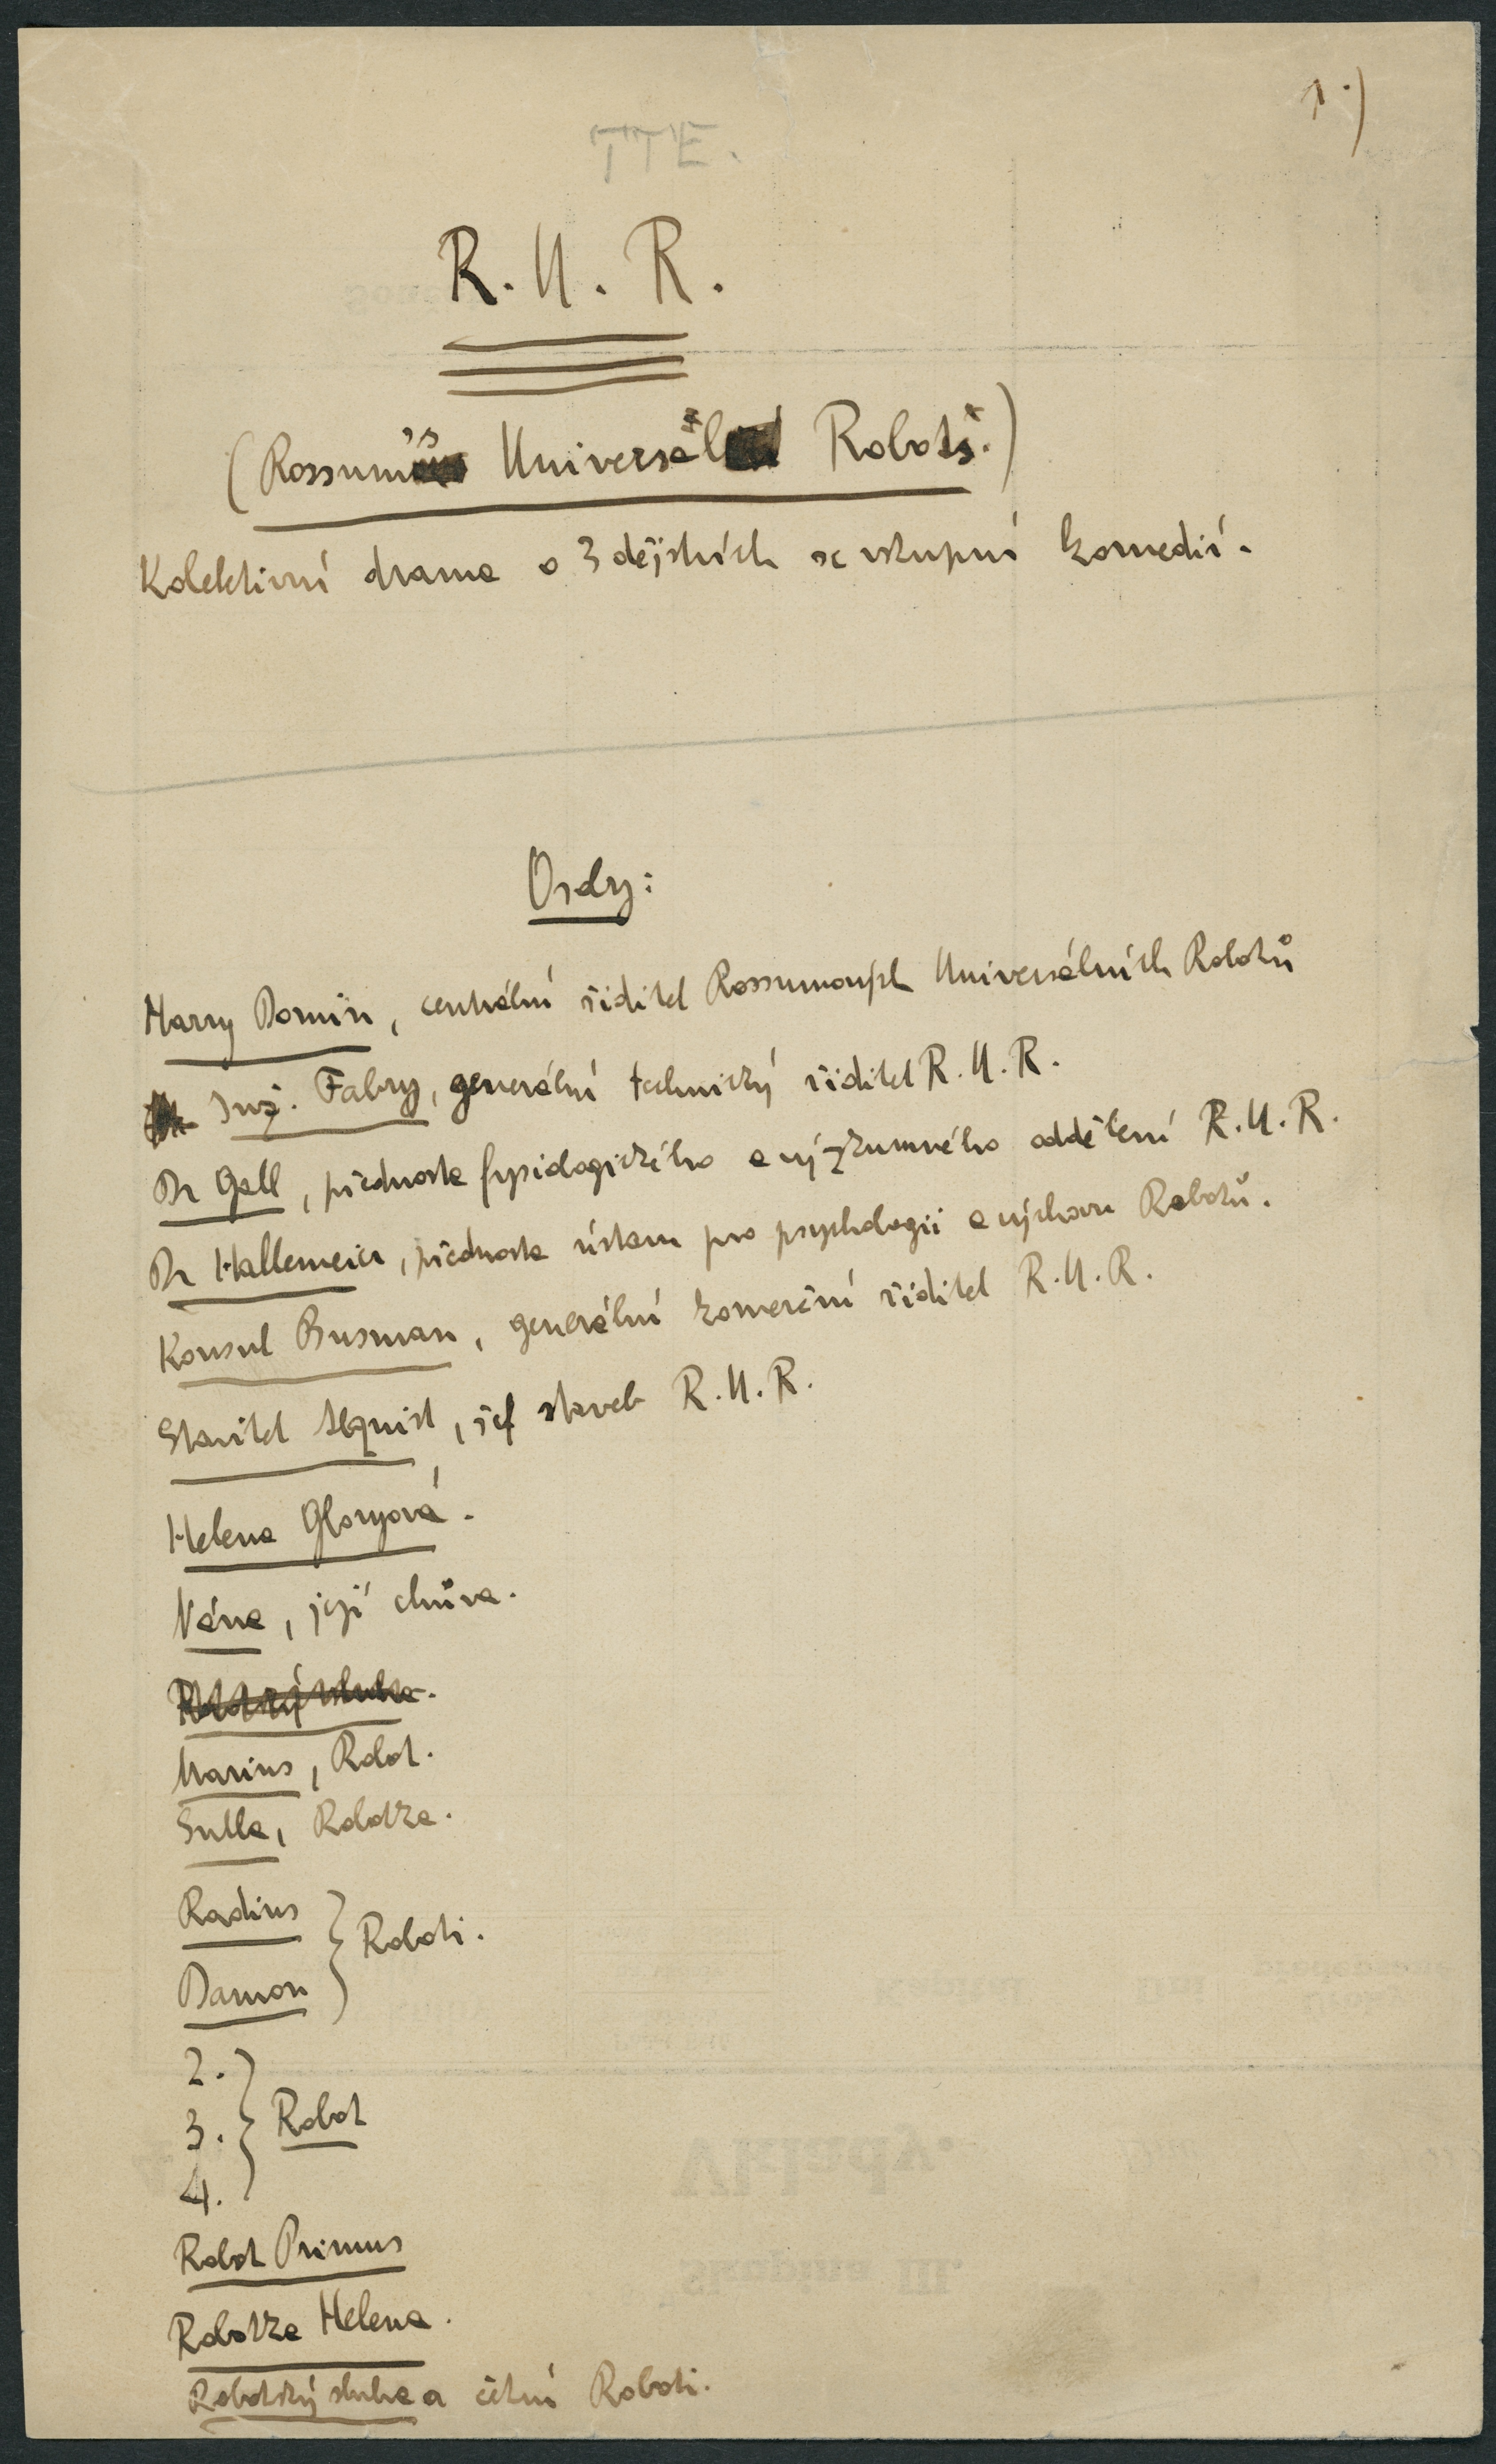 1.)
TTE.
R. U. R.
(Rossum's Universal Robots.)
Kolektivní drama o 3 dějstvích se vstupní komedií.
Osoby:
Harry Domin, centrální ředitel Rossumových Universálních Robotů
Inž. Fabry, generální technický ředitel R. U. R.
Dr Gall, přednosta fysiologického a výzkumného oddělení R. U. R.
Dr Hallemeier, přednosta ústavu pro psychologii a výchovu Robotů.
Konsul Busman, generální komerční ředitel R. U. R.
Stavitel Alquist, šéf staveb R. U. R.
Helena Gloryová.
Nána, její chůva.
Robotský sluha.
Marius, Robot.
Sulla, Robotka.
Radius
Damon } Roboti.
2.
3. } Robot
4.
Robot Primus
Robotka Helena.
Robotský sluha a četní Roboti.
Vklady.
Skupina III.